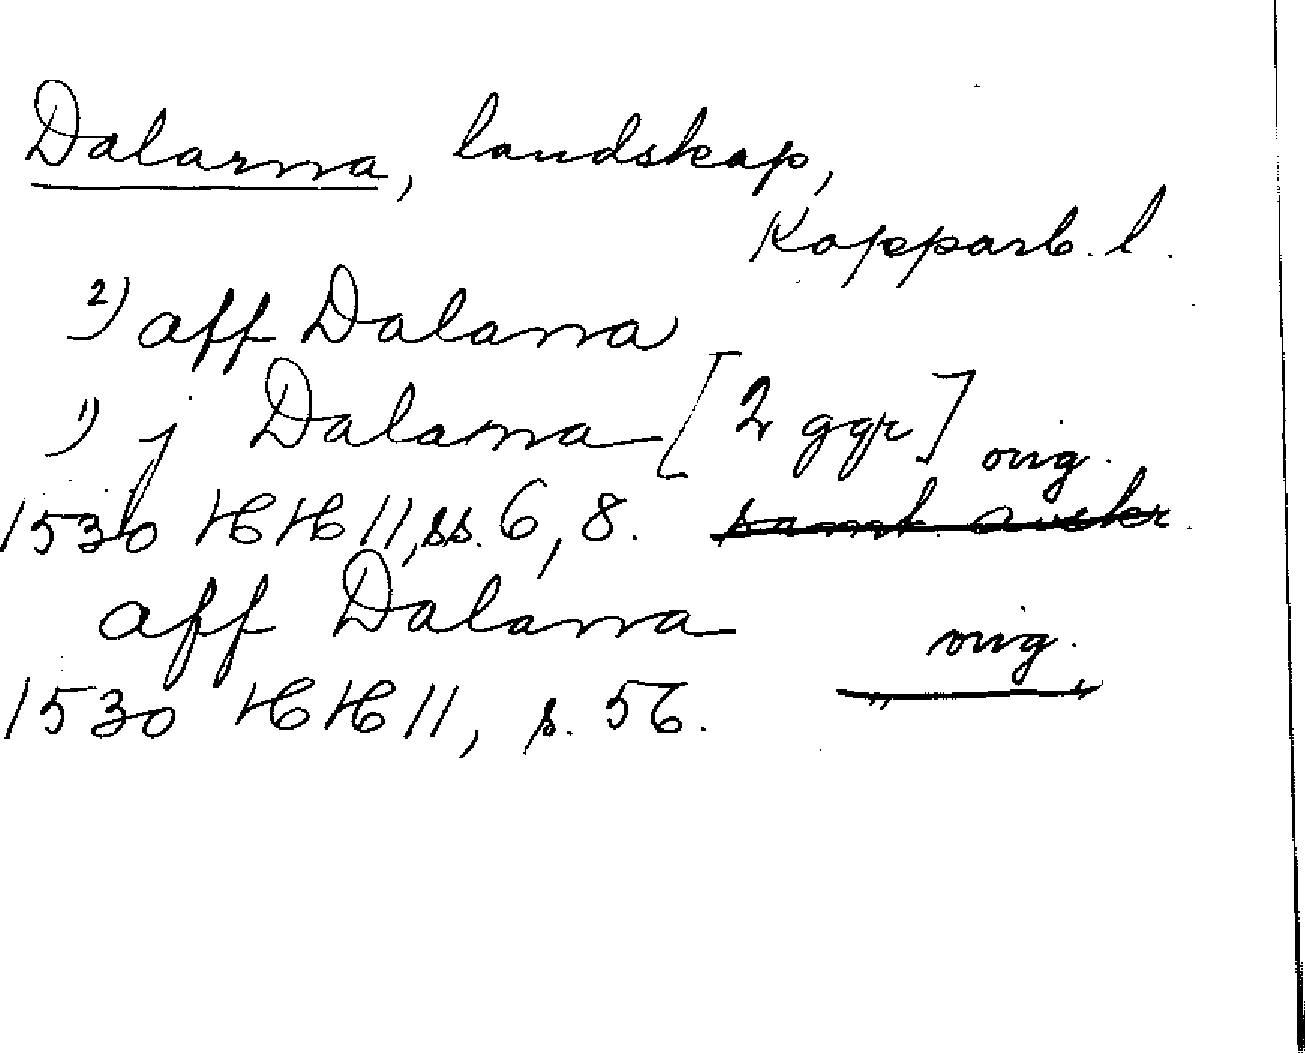 Dalarna, landskap,
Kopparb. l.
2) aff Dalarna
1) j Dalarna [2 ggr] orig.
1530 HH 11, ss. 6, 8. samt avskr.
aff Dalarna orig.
1530 HH 11, s. 56.